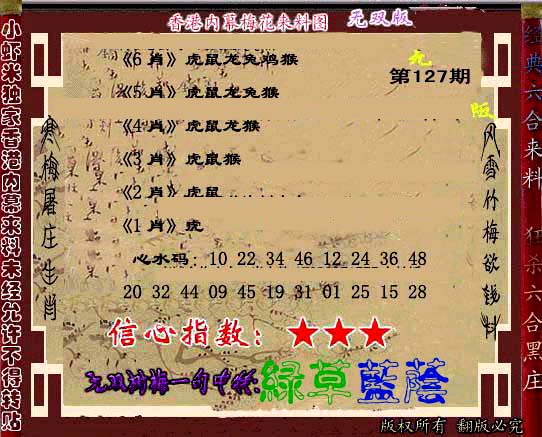 香港内幕梅花来料图 无双版
小虾米独家香港内幕来料未经允许不得转贴
寒梅屠庄生肖
第127期
《6 肖》虎鼠龙兔鸡猴
《5 肖》虎鼠龙兔猴
《4 肖》虎鼠龙猴
《3 肖》虎鼠猴
《2 肖》虎鼠
《1 肖》虎
心水码: 10 22 34 46 12 24 36 48
20 32 44 09 45 19 31 01 15 28
信心指数: ★★★
无双剑梅一句中特:綠草藍蔭
风雪竹梅欲钱料
经典六合来料
狂杀六合黑庄
版权所有 翻版必究